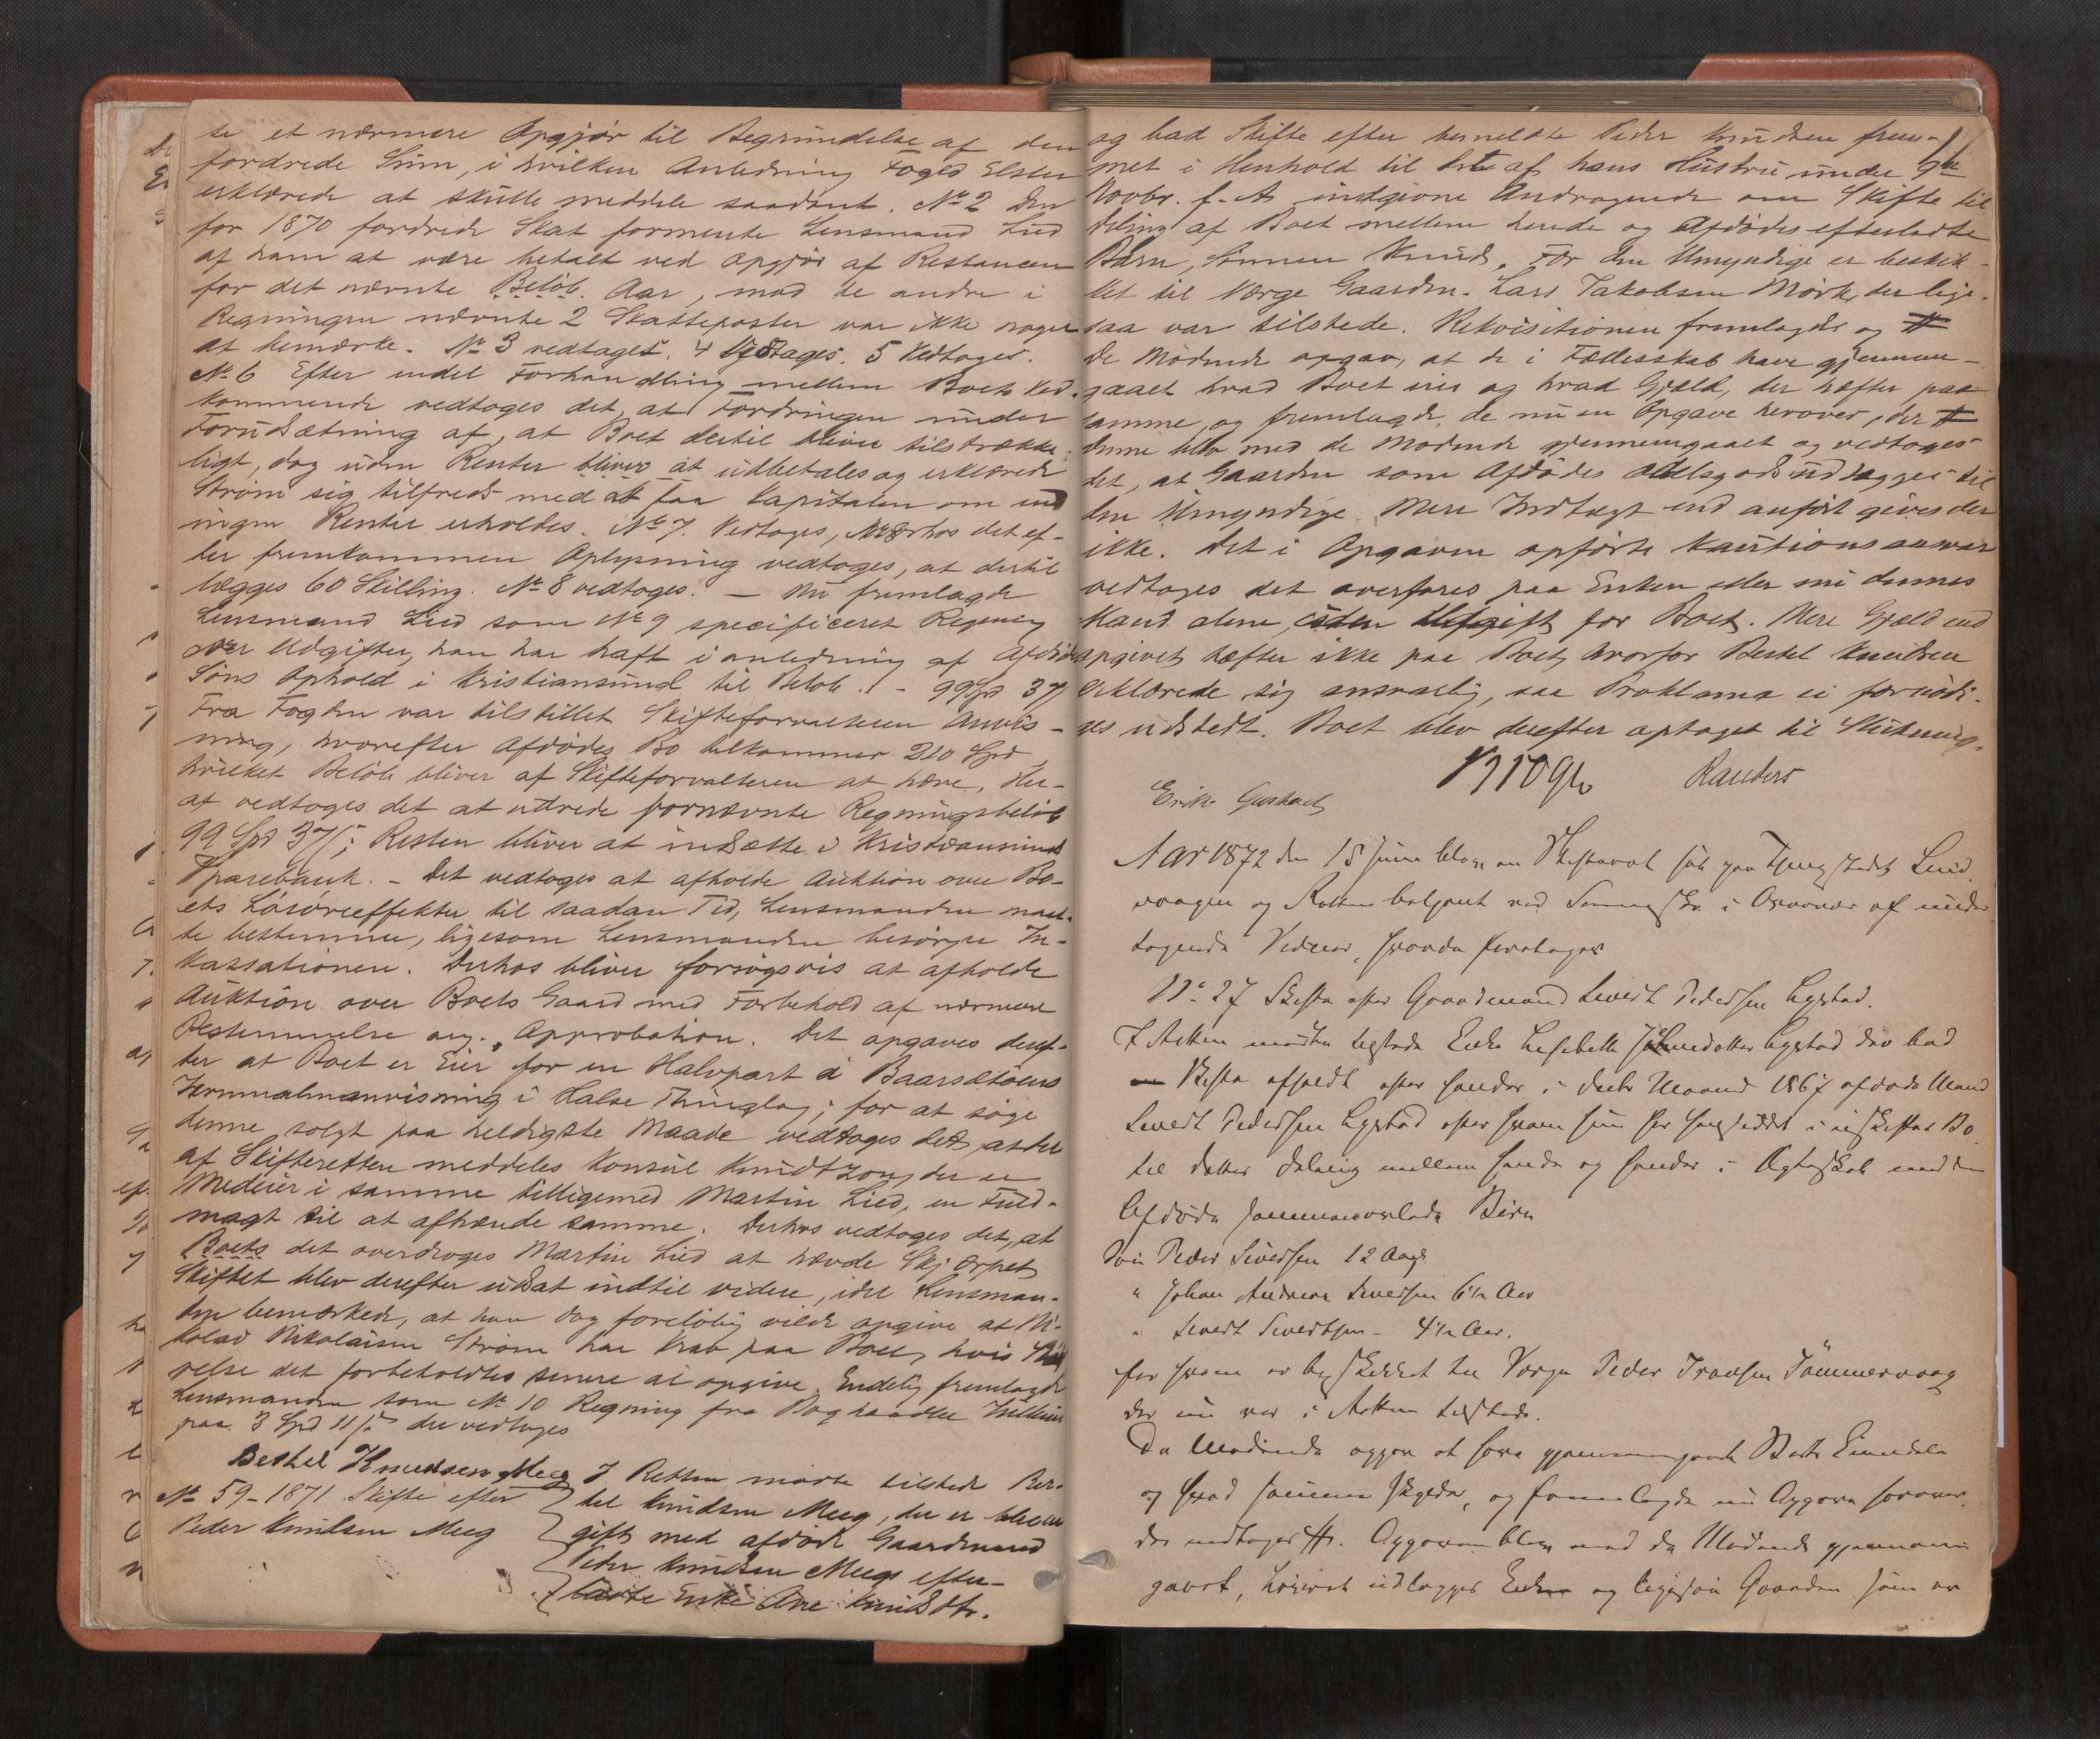 te et nærmere Opgjør til Begrundelse af den
fordrede Sum, i hvilken Anledning Foged Elster
erklærede at skulle meddele saadant. No 2 Den
for 1870 fordrede Skat formente Lensmand Lied
af ham at være betalt ved Opgjør af Restancen
for det nævnte Beløb. Aar, mod de andre i
Regningen nævnte 2 Skatteposter var ikke noget
at bemærke. No 3 vedtaget. 4 Vedtages. 5 Vedtages.
No 6 Efter endel Forhandling mellem Boets Ved-
kommende vedtoges det, at Fordringen under
Forudsætning af, at Boet dertil bliver tilstrække-
ligt, dog uden Renter bliver at udbetales og erklærede
Strøm sig tilfreds med at faa Kapitalen om end
ingen Renter erholdes. No 7. Vedtoges, derhos det ef-
ter fremkommen Oplysning vedtoges, at dertil
lægges 60 Skilling. No 8 vedtoges. — Nu fremlagde
Lensmand Lied som No 9 specificeret Regning
over Udgifter, han har haft i anledning af Afdødes
Søns Ophold i Kristiansund til Beløb. - 99 Spd 37
Fra Fogden var tilstillet Skifteforvalteren Anvis-
ning, hvorefter Afdødes Bo tilkommer 210 Spd
hvilket Beløb bliver af Skifteforvalteren at hæve. Her-
af vedtoges det at udrede fornævnte Regningsbeløb
99 Spd 37 ; Resten bliver at indsætte i Kristiansunds
Sparebank. - Det vedtoges at afholde Auktion over Bo-
ets Løsøreeffekter til saadan Tid, Lensmanden maat-
te bestemme, ligesom Lensmanden besørger In-
kassationen. Derhos bliver forsøgsvis at afholde
Auktion over Boets Gaard med Forbehold af nærmere
Bestemmelse ang. Approbation. Det opgaves deref-
ter at Boet er Eier for en Halvpart i Baarsetøens
Jernmalmanvisning i Halse Thinglag; for at søge
denne solgt paa heldigste Maade vedtoges det, at der
af Skifteretten meddeles Konsul Knudtzon, der er
Medeier i samme tilligemed Martin Lied, en Fuld-
magt til at afhænde samme. Derhos vedtoges det, at
Boets det overdroges Martin Lied at hævde Skjærpet
Skiftet blev derefter udsat indtil videre, idet Lensman-
den bemærkede, at han dog foreløbig vilde opgive at Ni-
kolai Nikolaisen Strøm har Krav paa Boet, hvis Stør-
relse det forbeholdtes senere at opgive. Endelig fremlagde
Lensmanden som No 10 Regning fra Boghandler
paa 3 Spd 11 der vedtoges
Berthel Knudsen Meeg
No 59-1871 Skifte efter
Peder Knudsen Meeg
I Retten mødte tilstede Ber-
tel Knudsen Meeg, der er bleven
gift med afdøde Gaardmand
Peder Knudsen Meegs efter-
ladte Enke Ane Knudsdtr.
og bad Skifte efter bemeldte Peder Knudsen frem-
met i Henhold til det af hans Hustru under 9de
Novbr. f. A. indgivne Andragende om Skifte til
Deling af Boet mellem hende og Afdødes efterladte
Barn, Sønnen Knud. For den Umyndige er beskik-
ket til Værge Gaardm. Lars Jakobsen Mørk, der lige-
saa var tilstede. Rekvisitionen fremlagdes og
De Mødende opgav, at de i Fællesskab have gjennem-
gaaet hvad Boet eier og hvad Gjæld, der hæfter paa
samme, og fremlagde de nu en Opgave herover, der
denne blev med de Mødende gjennemgaaet og vedtoges
det, at Gaarden som Afdødes Odelsgods udlægges til
den Umyndige. Mere Indtægt end anført gives der
ikke. Det i Opgaven opførte Kautionsansvar
vedtoges det overføres paa Enken eller nu dennes
Mand alene, uden Udgift for Boet. Mere Gjæld end
opgivet hæfter ikke paa Boet, hvorfor Bertel Knudsen
erklærede sig ansvarlig, saa Proklama ei fornødi-
ges udstedt. Boet blev derefter optaget til Slutning.
Randers
Erik Gustad
Aar 1872 den 15 Juni blev en Skifteret sat paa Thingstedet Lund
vaagen og Retten betjent ved i Overvær af under
tegnede Vidner, hvorda foretoges
No 27 Skifte efter Gaardmand Sivert Pedersen Ligstad.
I Retten mødte tilstede Enke Lisebeth Ligstad der bad
Skifte afholdt efter hendes i Decbr Maaned 1867 afdøde Mand
Sivert Pedersen Ligstad efter hvem hun har hensiddet i uskiftet Bo
til dettes Deling mellem hende og hendes i Ægteskab med den
Afdøde sammenavlede Børn
Peder Sivertsen 12 Aar
" Johan Andreas Sivertsen 6½ Aar
" Sivert Sivertsen - 4½ Aar.
for hvem er beskikket til Værge Peder Iversen Tømmervaag
der nu var i Retten tilstede.
De Mødende opgav at have gjennemgaaet Boets Eiendele
og hvad samme skylder, og fremlagde nu Opgave herover,
der vedtoges. Opgaven blev med de Mødende gjennem
gaaet, Løsøret udlægges Enken og ligesaa Gaarden som er